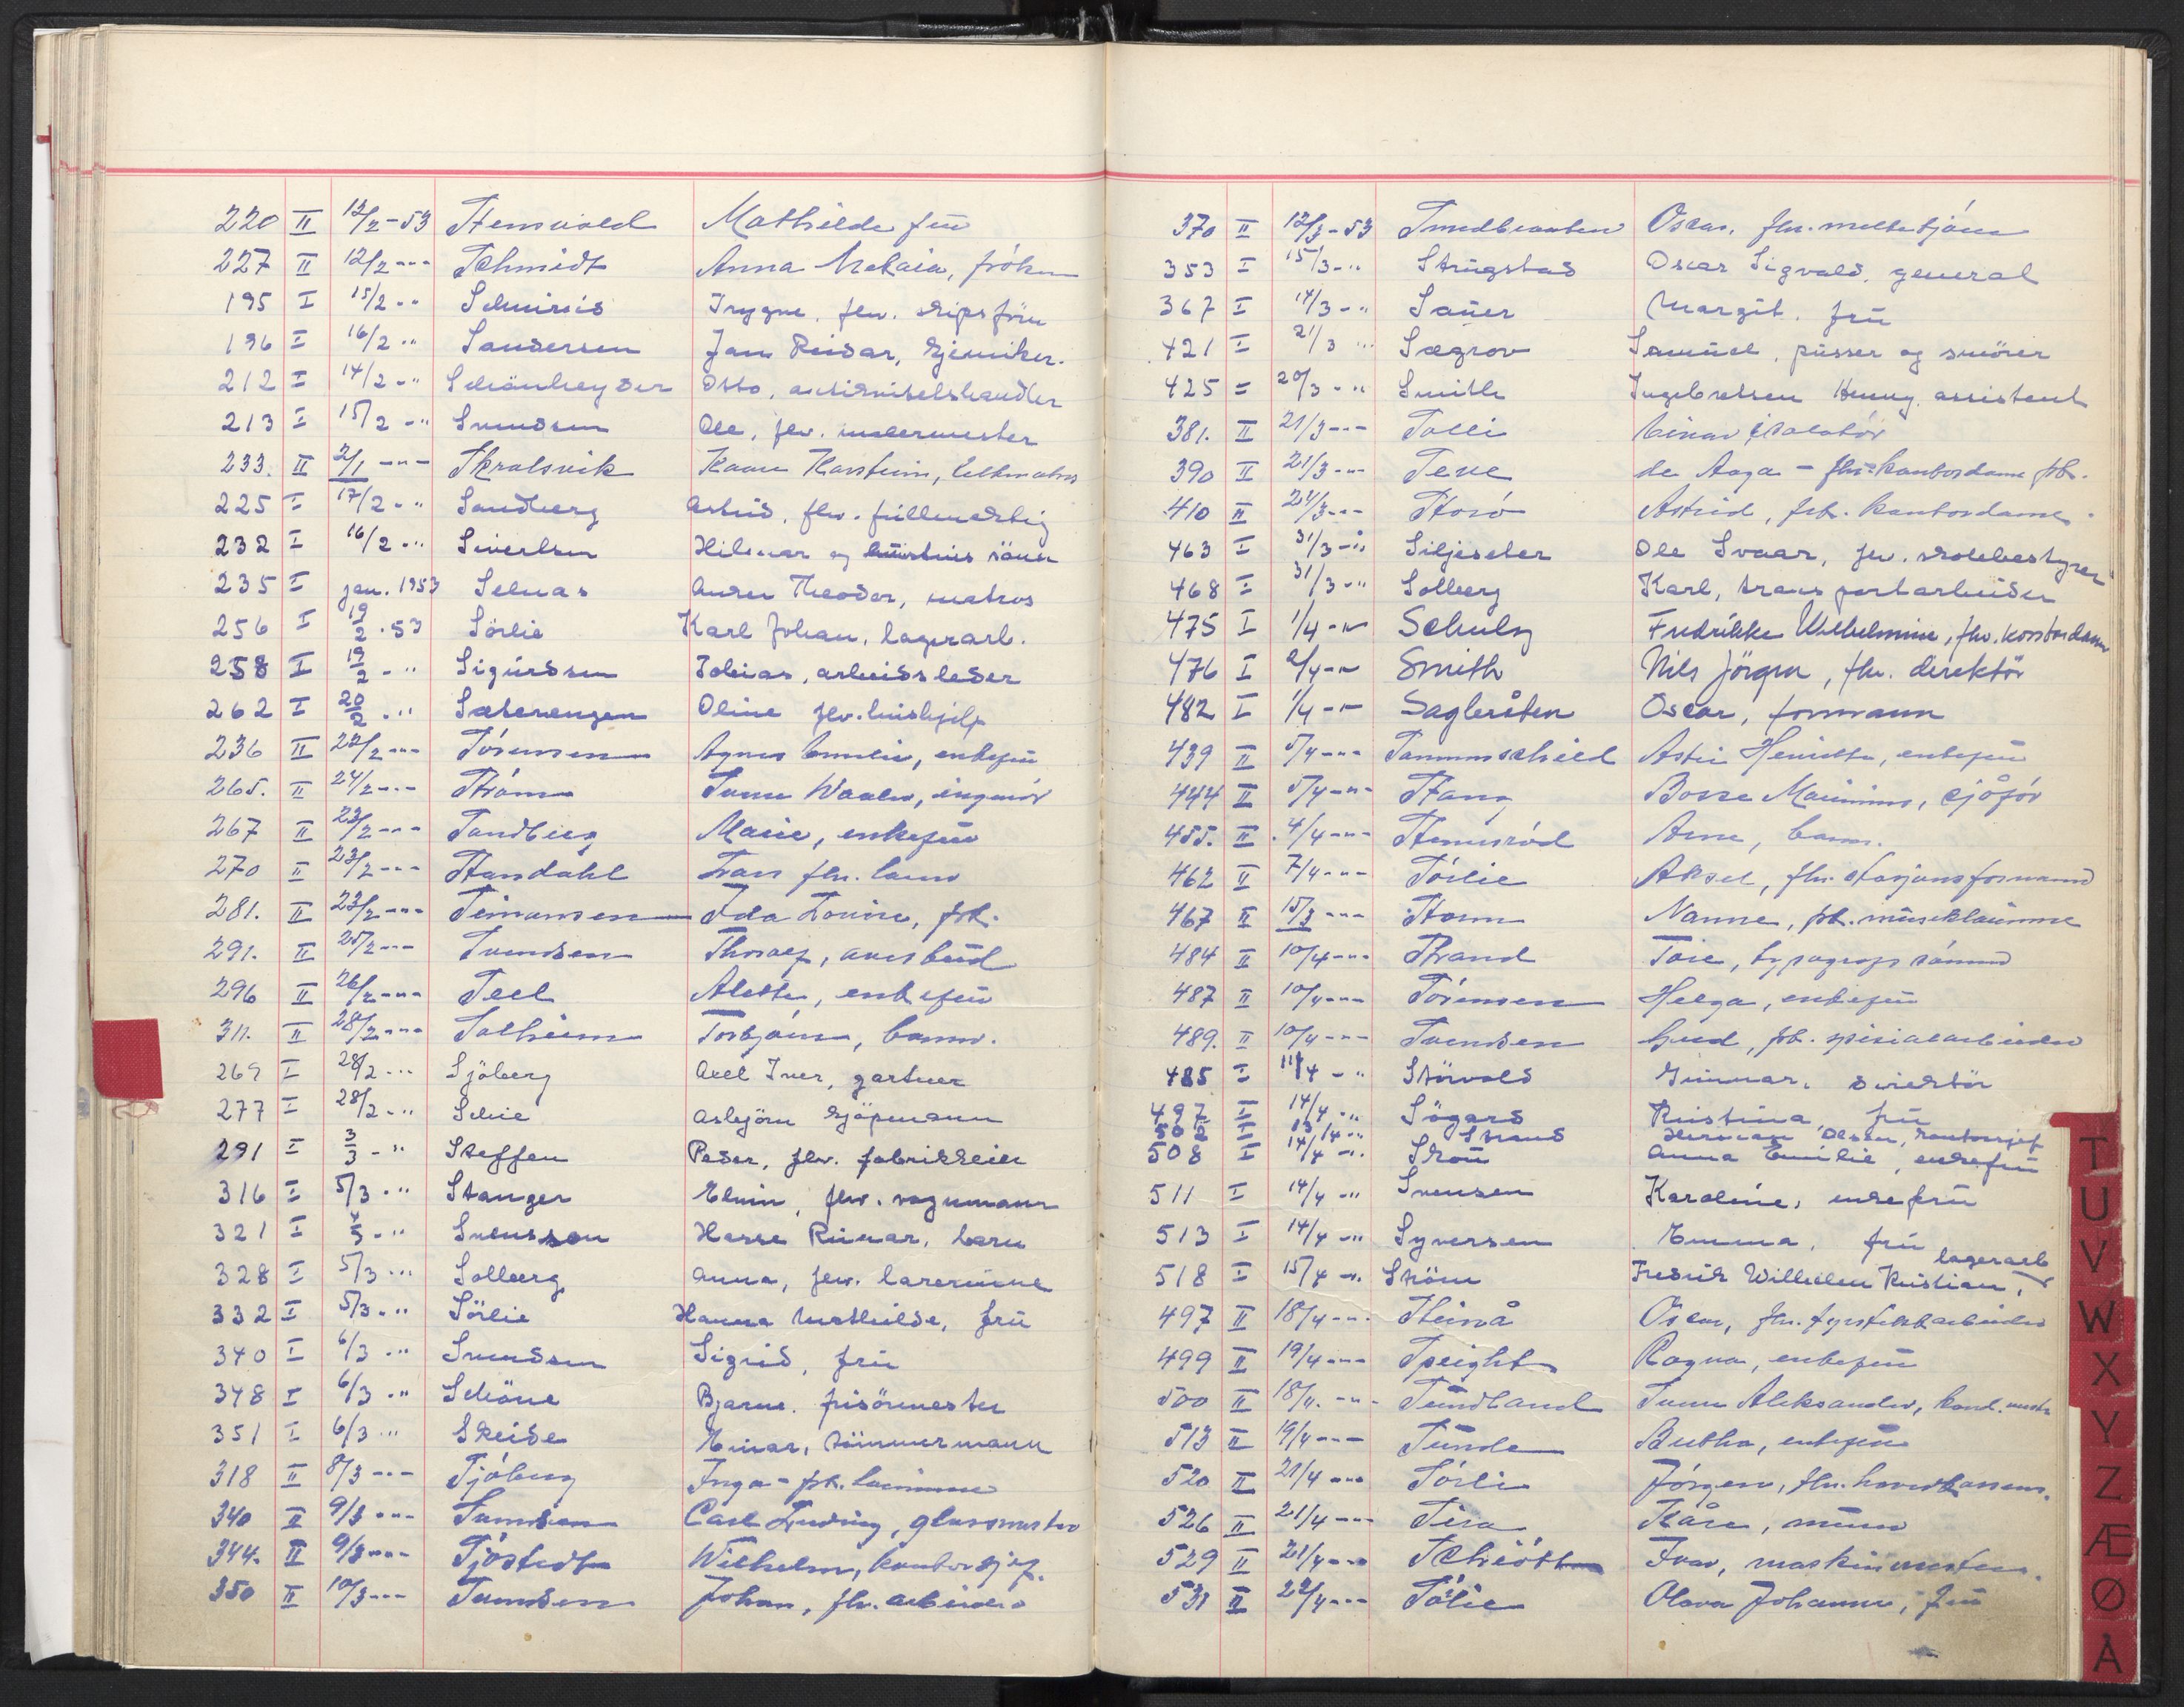 220 II 12/2-53 Stensvold Mathilde frü
227 II 12/2 --- Schmidt Anna Malaia, fröken
195 I 15/2 -" Schiviis Trygve. flv. skipsförer
196 I 16/2 " Sandersen Jan Reidar, kjemiker.
212 I 14/2 -" Schönheyder Otto, antikvitetshandler
213 I 15/2 -" Svendsen Ole, flv. malermester
233. II 2/1 -"- Skralsvik Kaare Karstein,
225 I 17/2 -" Sandberg Astrid, flv. fullmektig
232 I 16/2 -" Siverlsen Hilmar og hüstrüs sönn
235 I jan. 1953 Selnas Anders Theodor, matros
256 I 19/2 .53 Sörlie Karl Johan, lagerarb.
258 I 19/2 -" Sigürdsen Tobias, arbeidsleder
262 I 20/2 ." Saterengen Oline flv. hüshjelp
236 II 22/2 --- Sörensen Agnes Emilie, enkefrü
265. II 24/2 --- Ström Sünn Waaler, ingeniör
267 II 23/2 --- Sandberg Marie, enkefrü
270 II 23/2 --- Standahl Lars flv.
281. II 23/2 --- Simonsen Ida Lovise, frk.
291. II 25/2 --- Svendsen Thoralf, avisbüd
296 II 26/2 -"- Seel Alette, enkefrü
311. II 28/2 -"- Solheim Torbjörn, barn.
269 I 28/2 -" Sjöberg Axel Iver, gartner
277 I 28/2 -" Schie Asbjörn kjöpmann
291 I 3/3 -" Steffen Peder, flv. fabrikkeier
316 I 5/3 -" Stanger Elvin, flv. vognmann
321 I 4/3 -" Svensson Hasse Rünar, barn
328 I 5/3 -" Solberg Anna, flv. lærerinne
332 I 5/3 -" Sörlie Hanna Mathilde, frü
340 I 6/3 -" Svendsen Sigrid, frü
348 I 6/3 -" Schöne Bjarne. frisörmester
351 I 6/3 -" Skeide Einar, tömmermann
318 II 8/3 --- Sjöberg Inga - frk. lærinne
340 II 9/3 -"- Svendsen Carl Ludvig, glassmester
344. II 9/3 --- Sjöstedt Wilhelm, kontorsjef.
350 II 10/3 --- Svendsen Johan, flv. arbeider
370 II 12/3-53 Smedbraaten Oscar, flv.
353 I 15/3 -" Strügstad Oscar Sigvald, general
367 I 14/3 -" Saüer Margit. frü
421 I 21/3 -" Sægrov Samüel, püsser og smörer
425 = 20/3 -" Smith Ingebretsen Henny. assistent
381. II 21/3 --- Solli Einar isolatör
390 II 21/3 --- Seve de Aaga - flv. kontordame frk.
410 II 24/3 --- Storö Astrid, frk. kontordame
463 I 31/3 -" Siljeseter Ole Svaar, flv. skolebestyrer
468 I 31/3 -" Solberg Karl, transportarbeider
475 I 1/4 -"- Schulz Fredrikke Wilhelmine, flv. kontordame
476 I 2/4 -"- Smith Nils Jörgen, flv. direktör
482 I 1/4 -"- Sagbråten Oscar, formann
439 II 5/4 --- Sammschield Astri Henriette, enkefrü
444 II 5/4 -"- Stang Borre Maximus, sjåför
455. II 4/4 -"- Stensröd Arne, barn.
462 II 7/4 -"- Sörlie Aksel, flv. stasjonsformann
467 II 15/3 --- Storm Nanna, frk. müsiklærinne
484 II 10/4 --- Strand Tore, typograf sönnen
487 II 10/4 --- Sörensen Helga, enkefrü
489. II 10/4 --- Svendsen Gerd, frk. spesialarbeider
485 I 11/4 -" Störvold Günnar. direktör
497 I 14/4 -" Sögard Kristina frü
502 I 13/4 -" Strand Herman Olsen, kontorsjef
508 I 14/4 -". Skou Anna Emilie, enkefrü
511 I 14/4 -" Svensen Karoline, enkefrü
513 I 14/4 -" Syversen Emma, frü
518 I 15/4 -". Ström Fredrik Wilhelm Kristian, lagerarb
497 II 18/4 -"- Steinå Oscar, flv. fyrstikkarbeider
499 II 19/4 --- Speight Ragna, enkefrü
500 II 18/4. -"- Sündland Sünn Aleksander,
513 II 19/4 --- Sünde Bertha, enkefrü
520 II 21/4 --- Sörli Jörgen, flv. hovedkassens.
526 II 21/4 --- Sira Kåre, mürer
529 II 21/4 --- Schiött Ivar, maskinmester.
531 II 22/4 --- Sölie Olava Johanne, frü
T
U
V
W
X
Y
Z
Æ
Ø
Å